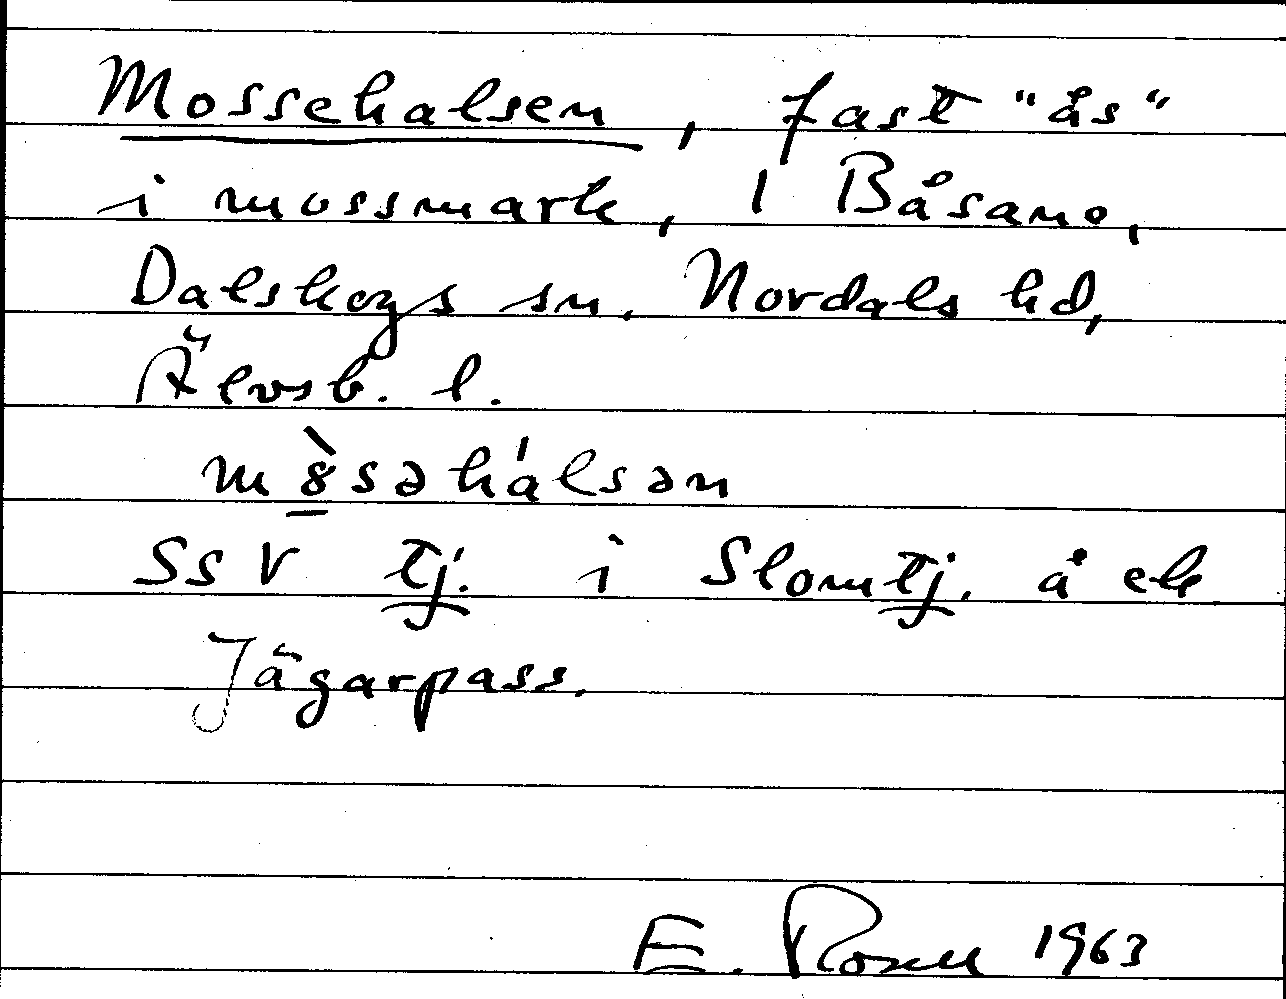 Mossehalsen, fast "ås"
i mossmark, 1 Båsane,
Dalskogs sn. Nordals hd,
Älvsb. l.
SSV tj. i Slomtj. å ek
Jägarpass.
E. Rosell 1963